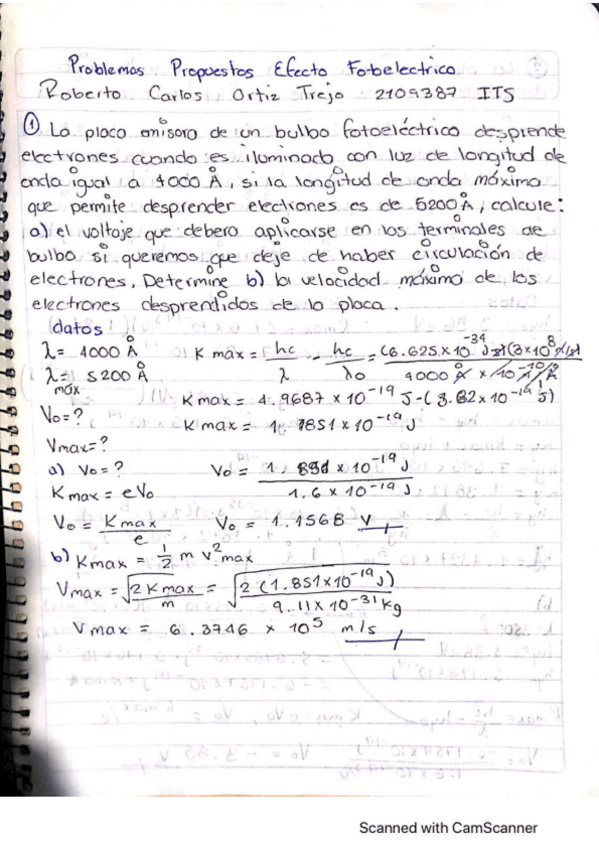 Problemas Propuestos Efecto Fotoelectrico
Roberto Carlos Ortiz Trejo 2109387 ITS
① La placa emisora de un bulbo fotoeléctrico desprende
electrones cuando es iluminado con luz de longitud de
onda igual a 4000 Å, si la longitud de onda máxima
que permite desprender electrones es de 5200 Å, calcule:
a) el voltaje que debera aplicarse en las terminales de
bulbo si queremos que deje de haber circulación de
electrones, Determine b) la velocidad máxima de los
electrones desprendidos de la placa.
datos
λ = 4000 Å K max = hc/λ - hc/λo = (6.625 x 10^-34 J-s)(3x10^8 m/s) / 4000 Å x 10^-10 m/1 Å
λ max = 5200 Å
K max = 4.9687 x 10^-19 J - (3.82 x 10^-19 J)
Vo = ?
Vmax = ?
a) Vo = ? Vo = 1.851 x 10^-19 J / 1.6 x 10^-19 J
Kmax = eVo
Vo = Kmax/e Vo = 1.1568 V
b) Kmax = 1/2 m v²max
Vmax = √2Kmax/m = √2(1.851x10^-19 J) / 9.11x10^-31 kg
Vmax = 6.3746 x 10^5 m/s
Scanned with CamScanner